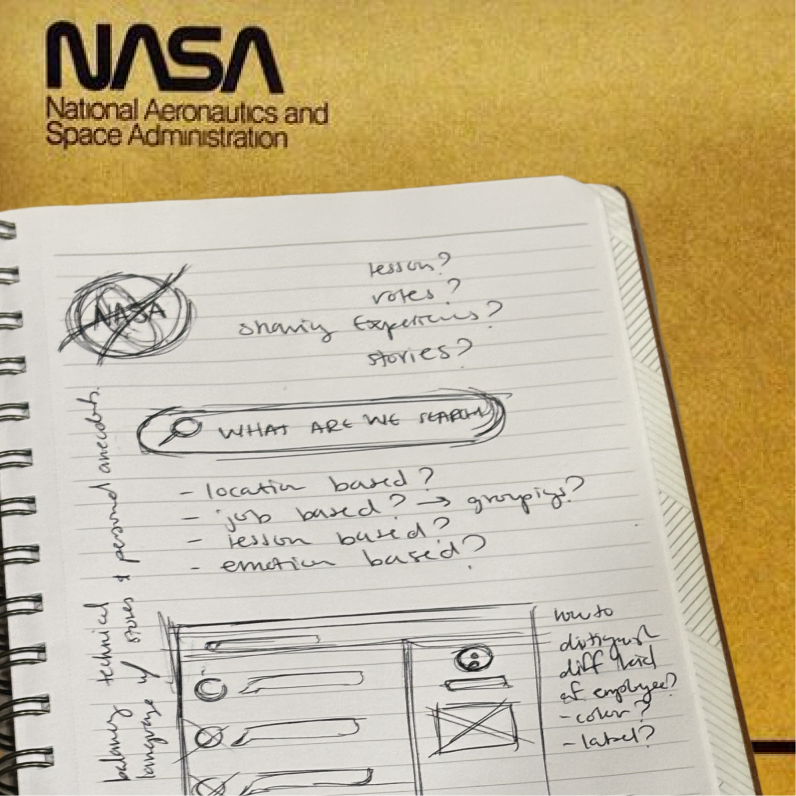 NASA
National Aeronautics and
Space Administration
NASA
lesson?
roles?
sharing Experiences?
stories?
WHAT ARE WE SEARCH
- location based?
- job based? → groupings?
- lesson based?
- emotion based?
balancing technical
language w/ stories + personal anecdotes.
how to
distinguish
diff kind
of employee?
- color?
- label?